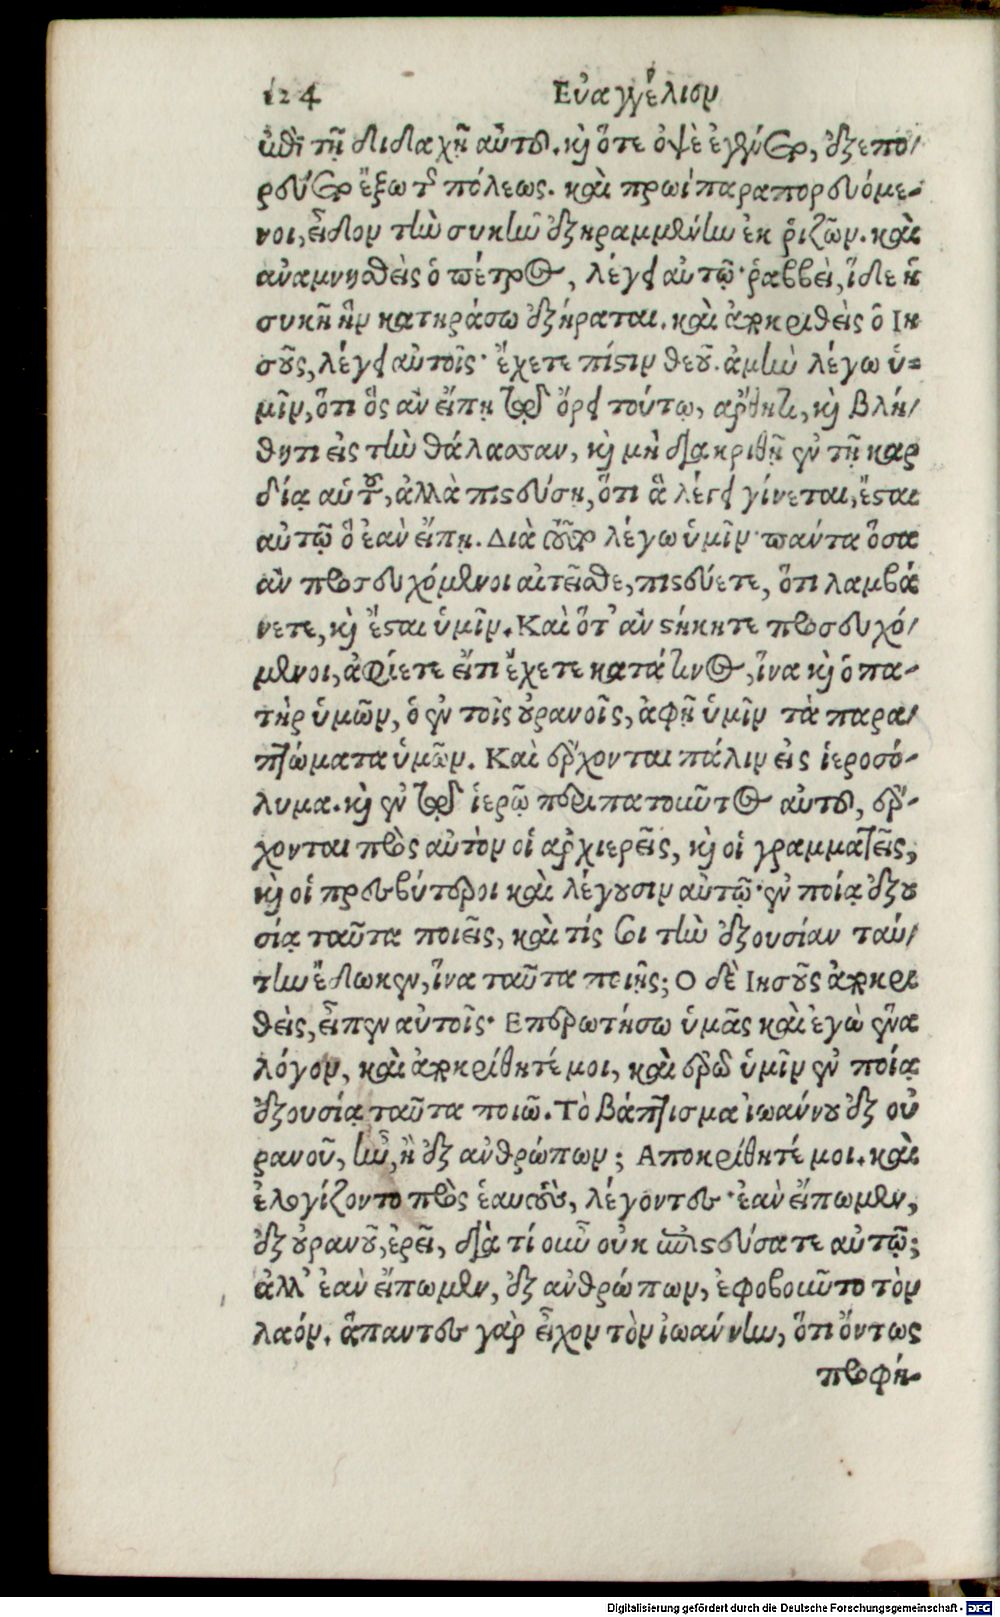 124 Εὐαγγέλιον
ἐπὶ τῇ διδαχῇ αὐτοῦ. καὶ ὅτε ὀψὲ ἐγένετο, ἐξεπο-
ρεύετο ἔξω τῆς πόλεως. καὶ πρωὶ παραπορευόμε-
νοι, εἶδον τὴν συκῆν ἐξηραμμένην ἐκ ῥιζῶν. καὶ
ἀναμνησθεὶς ὁ πέτρος, λέγει αὐτῷ· ῥαββεὶ, ἴδε ἡ
συκῆ ἣν κατηράσω ἐξήραται. καὶ ἀποκριθεὶς ὁ Ιη
σοῦς, λέγει αὐτοῖς· ἔχετε πίστιν θεοῦ. ἀμὴν λέγω ὑ-
μῖν, ὅτι ὃς ἂν εἴπῃ τῷ ὄρει τούτῳ, ἄρθητι, καὶ βλή-
θητι εἰς τὴν θάλασσαν, καὶ μὴ διακριθῇ ἐν τῇ καρ
δίᾳ αὑτοῦ, ἀλλὰ πιστεύσῃ, ὅτι ἃ λέγει γίνεται, ἔσται
αὐτῷ ὃ ἐὰν εἴπῃ. Διὰ τοῦτο λέγω ὑμῖν· πάντα ὅσα
ἂν προσευχόμενοι αἰτεῖσθε, πιστεύετε, ὅτι λαμβά
νετε, καὶ ἔσται ὑμῖν. Καὶ ὅτ' ἂν στήκητε προσευχό-
μενοι, ἀφίετε εἴ τι ἔχετε κατά τινος, ἵνα καὶ ὁ πα-
τὴρ ὑμῶν, ὁ ἐν τοῖς οὐρανοῖς, ἀφῇ ὑμῖν τὰ παρα-
πτώματα ὑμῶν. Καὶ ἔρχονται πάλιν εἰς ἱεροσό-
λυμα. καὶ ἐν τῷ ἱερῷ περιπατοῦντος αὐτοῦ, ἔρ-
χονται πρὸς αὐτὸν οἱ ἀρχιερεῖς, καὶ οἱ γραμματεῖς,
καὶ οἱ πρεσβύτεροι καὶ λέγουσιν αὐτῷ· ἐν ποίᾳ ἐξου
σίᾳ ταῦτα ποιεῖς, καὶ τίς σοι τὴν ἐξουσίαν ταύ-
την ἔδωκεν, ἵνα ταῦτα ποιῇς; Ο δὲ Ιησοῦς ἀποκρι
θεὶς, εἶπεν αὐτοῖς· Επερωτήσω ὑμᾶς καὶ ἐγὼ ἕνα
λόγον, καὶ ἀποκρίθητέ μοι, καὶ ἐρῶ ὑμῖν ἐν ποίᾳ
ἐξουσίᾳ ταῦτα ποιῶ. Τὸ βάπτισμα ἰωάννου ἐξ οὐ
ρανοῦ, ἦν, ἢ ἐξ ἀνθρώπων; Αποκρίθητέ μοι. καὶ
ἐλογίζοντο πρὸς ἑαυτοὺς, λέγοντες· ἐὰν εἴπωμεν,
ἐξ οὐρανοῦ, ἐρεῖ, διὰ τί οὖν οὐκ ἐπιστεύσατε αὐτῷ;
ἀλλ' ἐὰν εἴπωμεν, ἐξ ἀνθρώπων, ἐφοβοῦντο τὸν
λαόν. ἅπαντες γὰρ εἶχον τὸν ἰωάννην, ὅτι ὄντως
προφή-
Digitalisierung gefördert durch die Deutsche Forschungsgemeinschaft - DFG